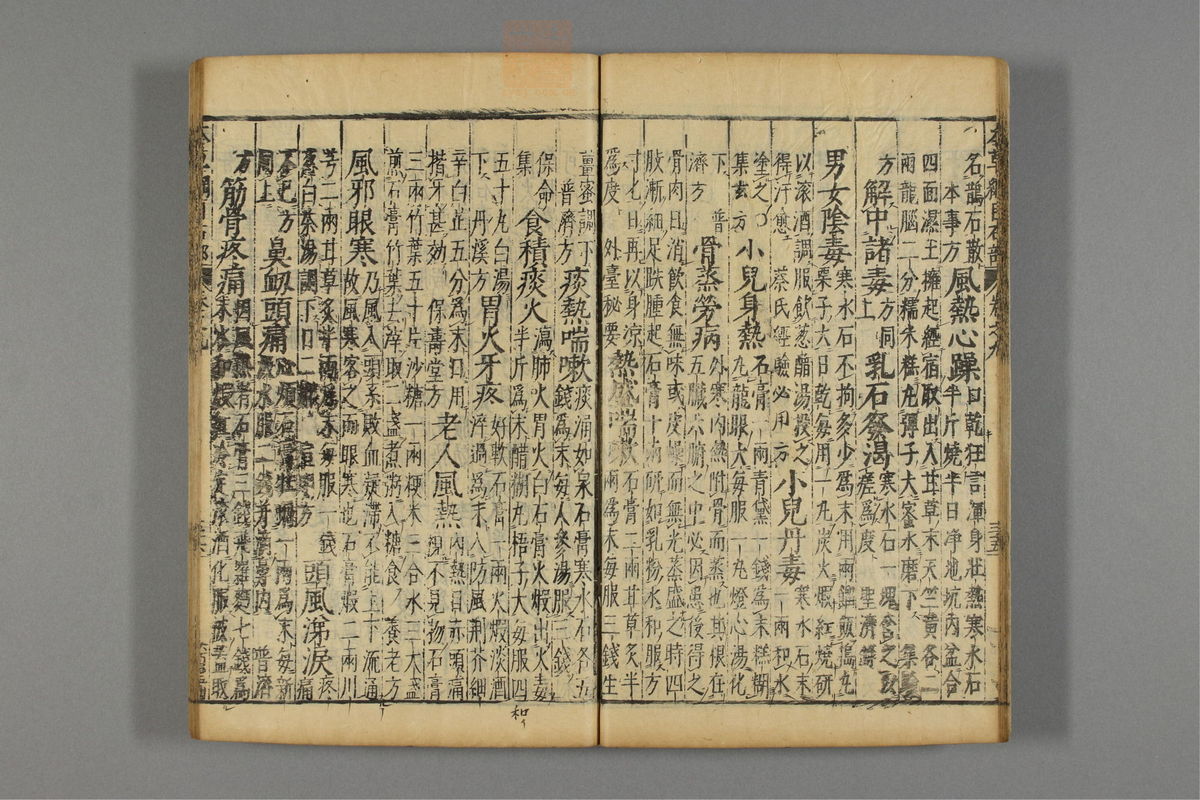 名鵲石散
本事方
風熱心躁
口乾狂言渾身壯熱寒水石
半斤燒半日淨地坑內盆合
四面濕土擁起經宿取出入甘草末天竺黃各二
兩龍腦二分糯米糕丸彈子大蜜水磨下集
方
解中諸毒
方同
上
乳石發渴
寒水石一塊含之以
瘥爲度 聖濟錄
男女陰毒
寒水石不拘多少爲末用兩餾飯搗丸
栗子大日乾每用一丸炭火煅紅燒研
以滾酒調服飲葱醋湯投之
得汗愈 蔡氏經驗必用方
小兒丹毒
寒水石末
一兩和水
塗之〇
集玄方
小兒身熱
石膏一兩青黛一錢爲末糕糊
丸龍眼大每服一丸燈心湯化
下 普
濟方
骨蒸勞病
外寒內熱附骨而蒸也其根在
五臟六腑之中必因患後得之
骨肉日消飲食無味或皮燥而無光蒸盛之時四
肢漸細足趺腫起石膏十兩研如乳粉水和服方
寸匕日再以身涼
爲度 外臺秘要
熱盛喘嗽
石膏二兩甘草炙半
兩爲末每服三錢生
薑蜜調下
普濟方
痰熱喘嗽
痰涌如泉石膏寒水石各五
錢爲末每人參湯服三錢
保命
集
食積痰火
瀉肺火胃火白石膏火煅出火毒
半斤爲末醋糊丸梧子大每服四
五十丸白湯
下 丹溪方
胃火牙疼
好軟石膏一兩火煅淡酒
淬過爲末入防風荆芥細
辛白芷五分爲末日用
揩牙甚効 保壽堂方
老人風熱
內熱目赤頭痛
視不見物石膏
三兩竹葉五十片沙糖一兩粳米三合水三大盞
煎石膏竹葉去滓取二盞煮粥入糖食 養老方
風邪眼寒
乃風入頭系敗血凝滯不能上下流通
故風寒客之而眼寒也石膏煅二兩川
芎二兩甘草炙半兩爲末每服一錢
葱白茶湯調下日二服 宣明方
頭風涕淚
疼
痛
不已方
同上
鼻衄頭痛
心煩石膏牡蠣一兩爲末每新
汲水服二錢并滴鼻內 普濟
方
筋骨疼痛
因風熱者石膏三錢飛羅麪七錢爲
末水和煅 酒化服被蓋取
和